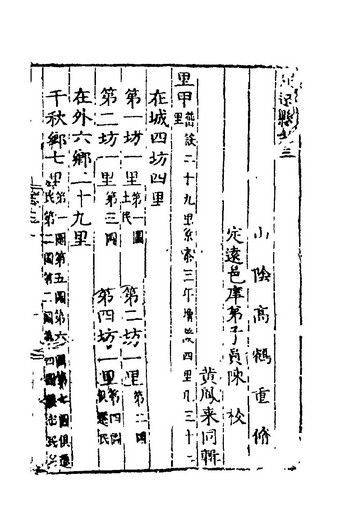 定遠縣志三
山陰高鶴重脩
定遠邑庠弟子員陳 校
黃鳳来同輯
里甲 舊設二十九里嘉靖三年增設四里凡三十二里
在城四坊四里
第一坊一里第一啚土民 第二坊一里第二啚
第二坊一里第三啚 第四坊一里第四啚俱遷民
在外六鄉二十九里
千秋鄉七里第一啚第五啚第六啚第七啚俱遷民第二啚